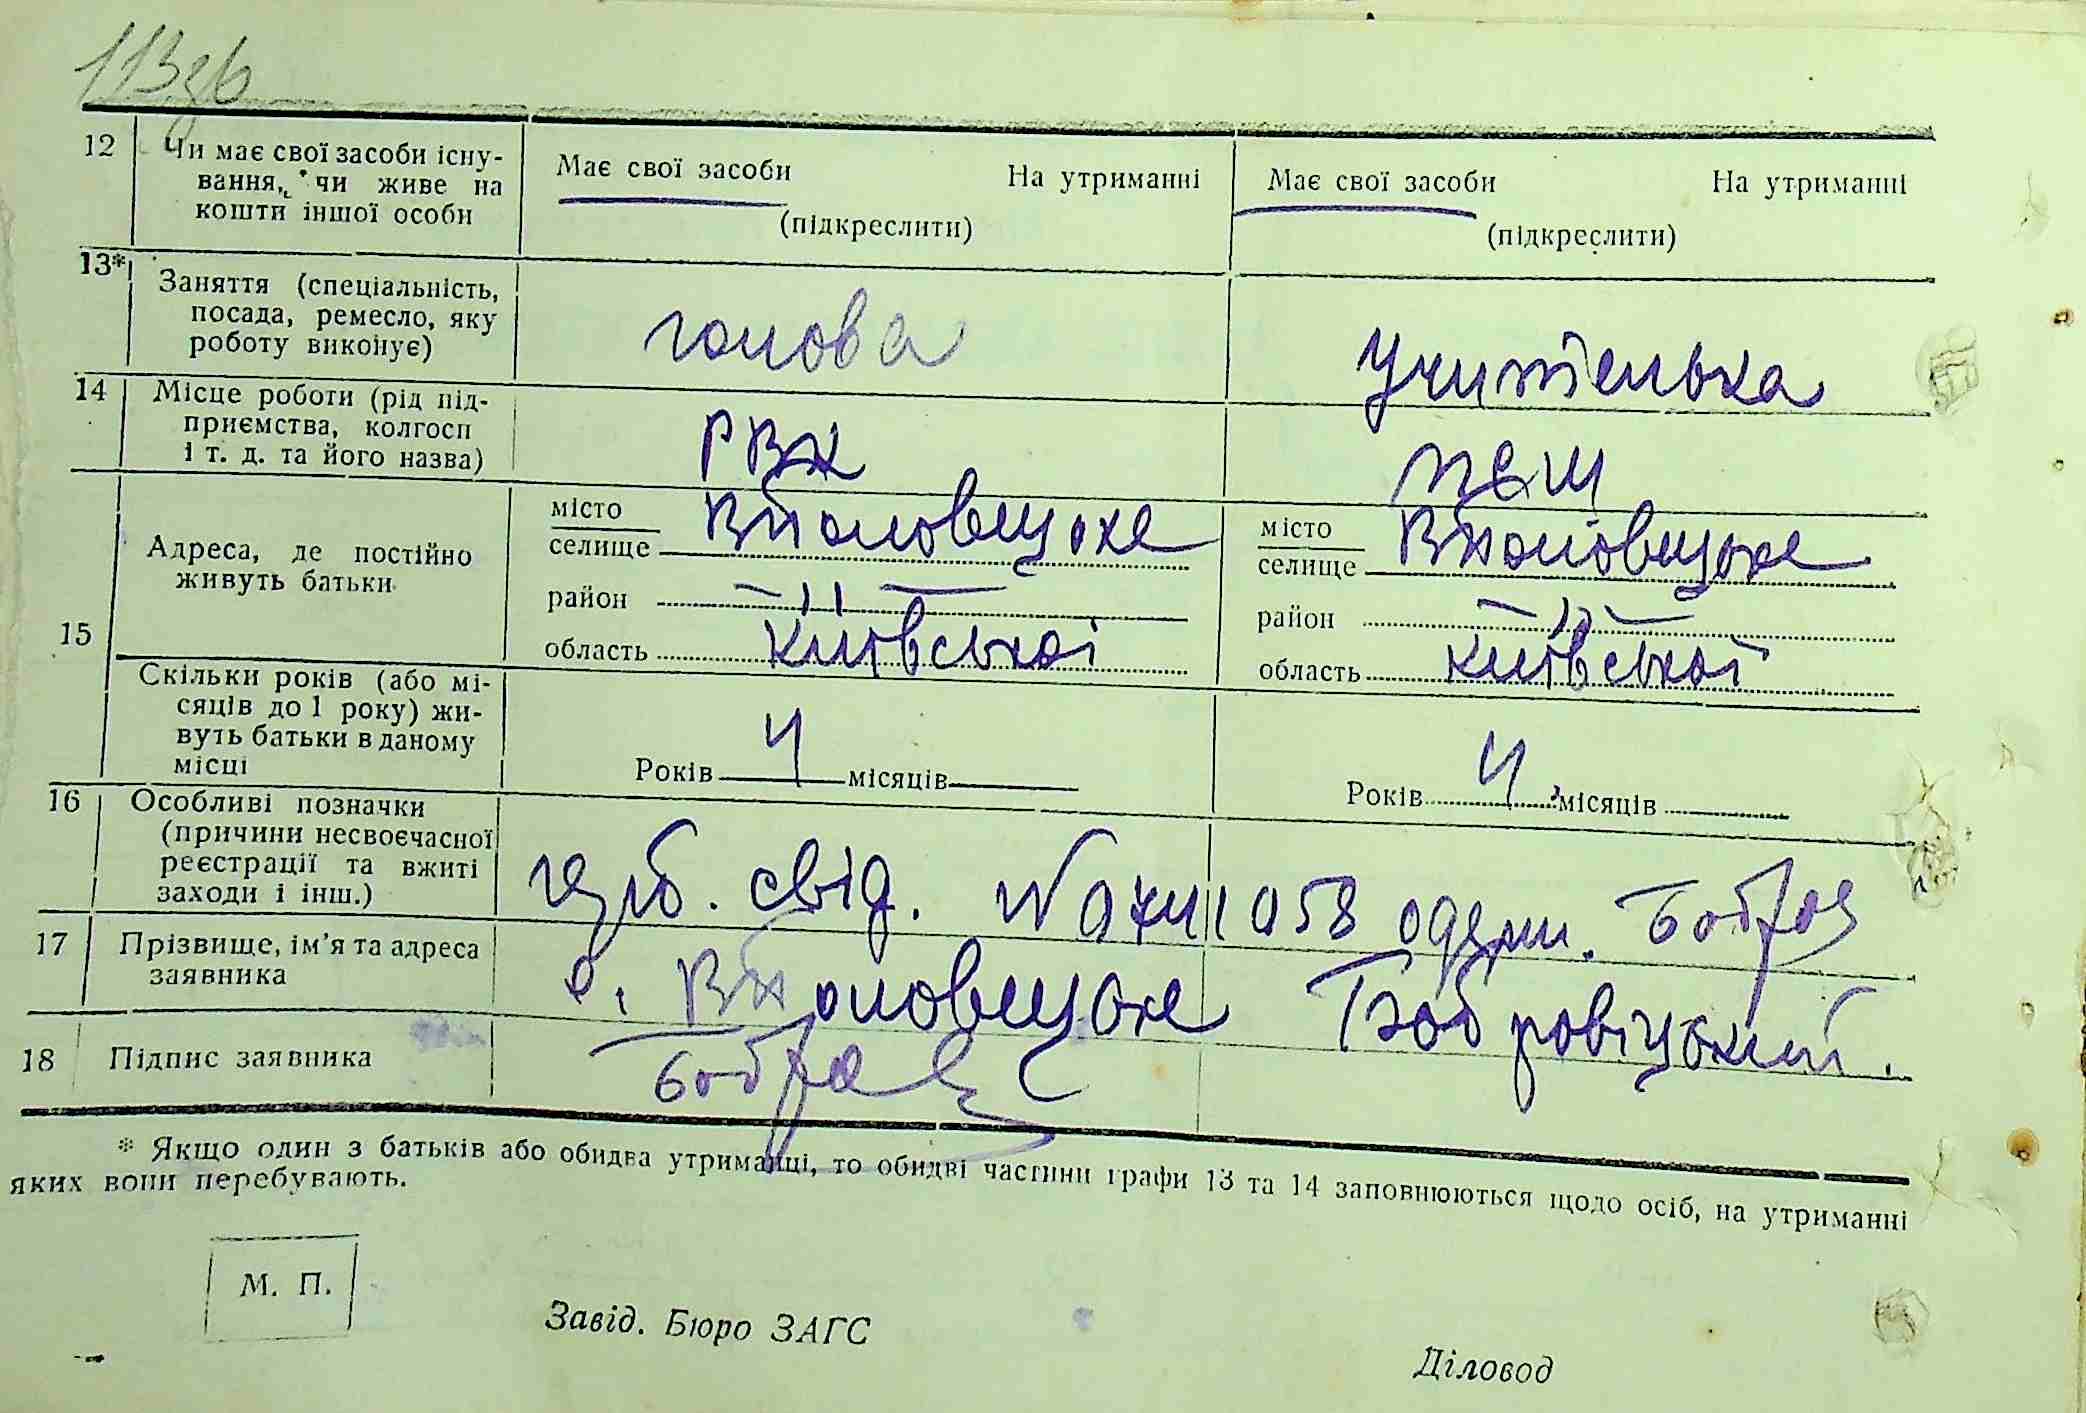 113зв
12 Чи має свої засоби існу-
вання, чи живе на
кошти іншої особи
Має свої засоби На утриманні
(підкреслити)
Має свої засоби На утриманні
(підкреслити)
13* Заняття (спеціальність,
посада, ремесло, яку
роботу виконує)
голова
учителька
14 Місце роботи (рід під-
приємства, колгосп
і т. д. та його назва)
РВК
15 Адреса, де постійно
живуть батьки
місто
селище
район — " —
область Київської
місто
селище
район — " —
область Київської
Скільки років (або мі-
сяців до 1 року) жи-
вуть батьки в даному
місці
Років 4 місяців
Років 4 місяців
16 Особливі позначки
(причини несвоєчасної
реєстрації та вжиті
заходи і інш.)
свід. №
17 Прізвище, ім'я та адреса
заявника
с. Бобровіцький.
18 Підпис заявника
* Якщо один з батьків або обидва утриманці, то обидві частини графи 13 та 14 заповнюються щодо осіб, на утриманні
яких вони перебувають.
М. П.
Завід. Бюро ЗАГС
Діловод